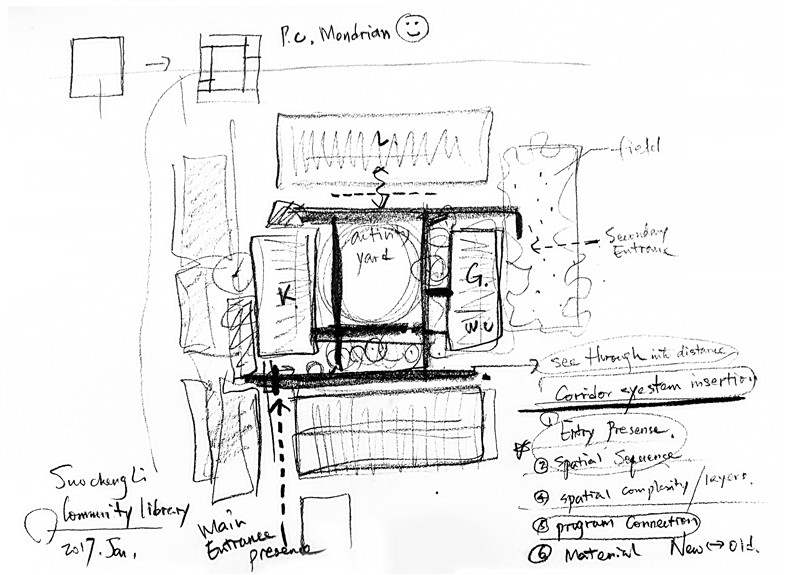 P.C. Mondrian
L
field
activity
yard
Secondary
Entrance
K.
G.
W.C
see through into distance
Corridor syestem insertion
① Entry Presense.
② Spatial Sequence
④ spatial complexity / layers.
⑤ program Connection
⑥ Material New ↔ Old.
SuochengLi
Community library
2017. Jan.
Main
Entrance
presence